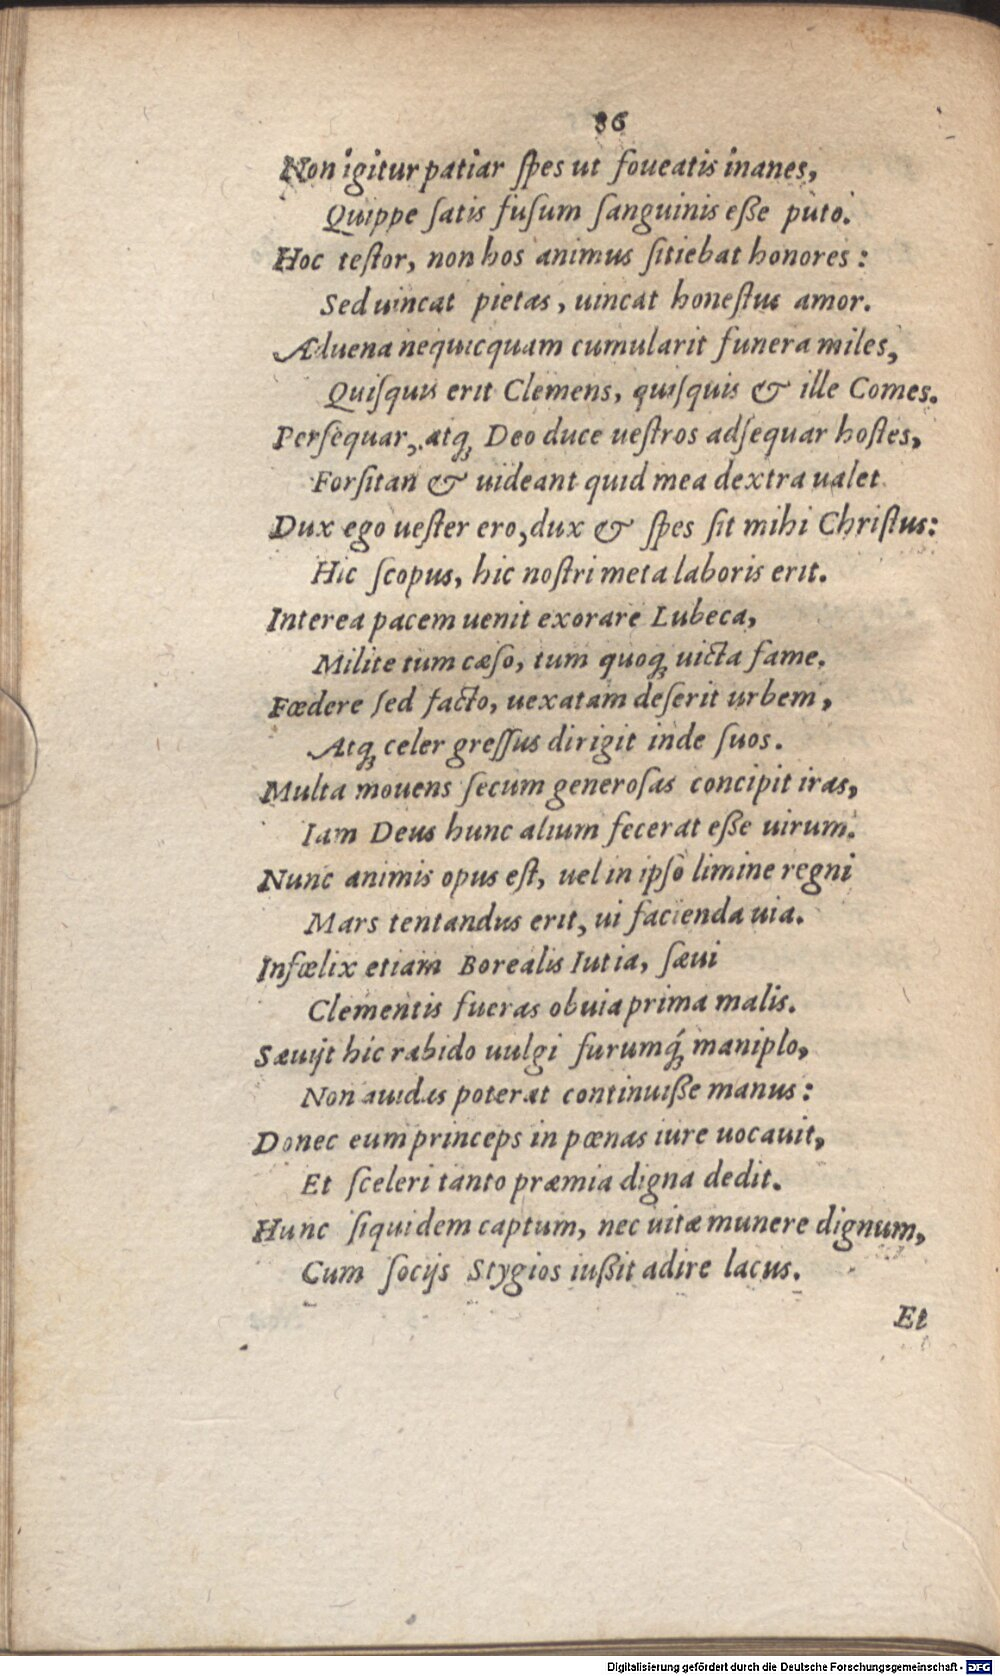 86
Non igitur patiar ſpes ut foueatis inanes,
Quippe ſatis fuſum ſanguinis eße puto.
Hoc teſtor, non hos animus ſitiebat honores:
Sed uincat pietas, uincat honeſtus amor.
Aduena nequicquam cumularit funera miles,
Quiſquis erit Clemens, quiſquis & ille Comes.
Perſequar, atq́; Deo duce ueſtros adſequar hoſtes,
Forſitan & uideant quid mea dextra ualet.
Dux ego ueſter ero, dux & ſpes ſit mihi Chriſtus:
Hic ſcopus, hic noſtri meta laboris erit.
Interea pacem uenit exorare Lubeca,
Milite tum cæſo, tum quoq; uicta fame.
Fœdere ſed facto, uexatam deſerit urbem,
Atq; celer greſſus dirigit inde ſuos.
Multa mouens ſecum generoſas concipit iras,
Iam Deus hunc alium fecerat eße uirum.
Nunc animis opus eſt, uel in ipſo limine regni
Mars tentandus erit, ui facienda uia.
Infœlix etiam Borealis Iutia, ſæui
Clementis fueras obuia prima malis.
Sæuijt hic rabido uulgi furumq́; maniplo,
Non auidas poterat continuiße manus:
Donec eum princeps in pœnas iure uocauit,
Et ſceleri tanto præmia digna dedit.
Hunc ſiquidem captum, nec uitæ munere dignum,
Cum ſocijs Stygios iußit adire lacus.
Et
Digitalisierung gefördert durch die Deutsche Forschungsgemeinschaft - DFG